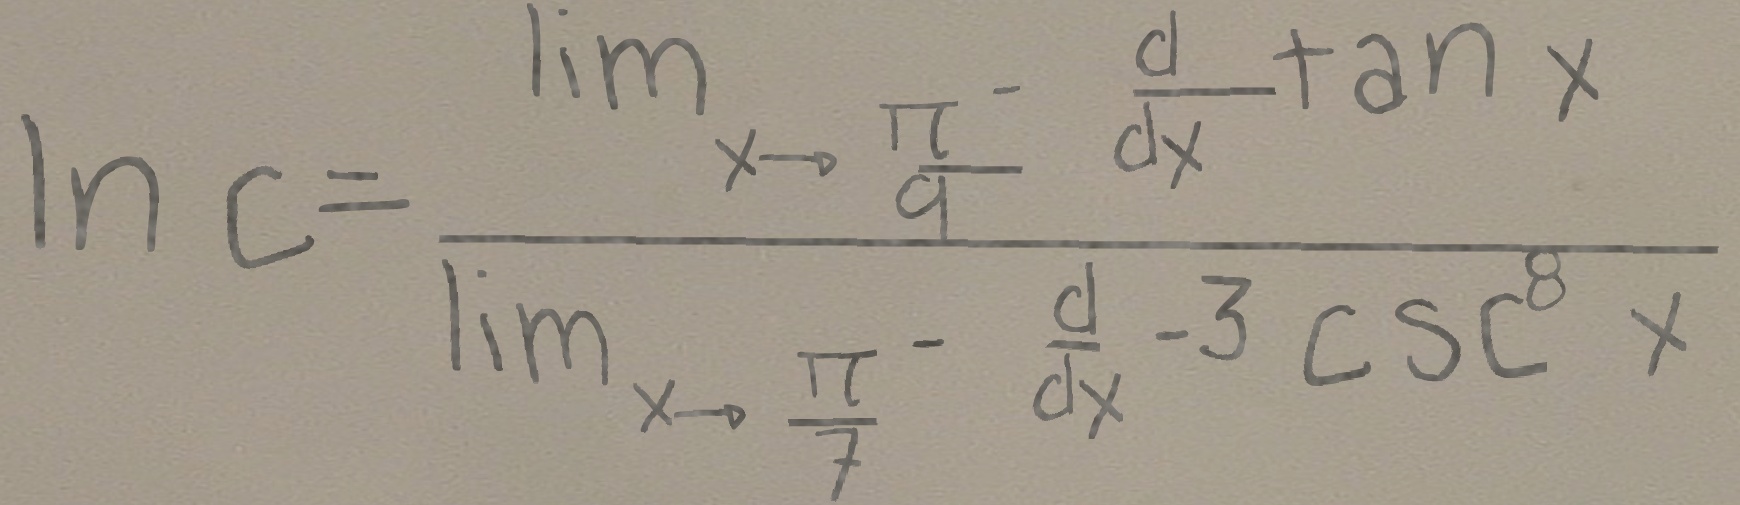 ln c = \frac{\lim_{x \to \frac{\pi}{9}^-} \frac{d}{dx} \tan x}{\lim_{x \to \frac{\pi}{7}^-} \frac{d}{dx} -3 \csc^8 x}